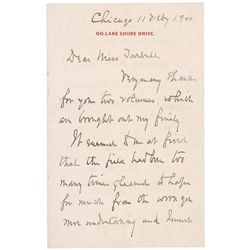 Chicago 11 Feby 1900
60 LAKE SHORE DRIVE.
Dear Miss Tarbell
Very many thanks
for your two volumes, which
are brought out very finely.
It seemed to me at first
that the field had been too
many times gleaned to hope
for much from the
undertaking and I must